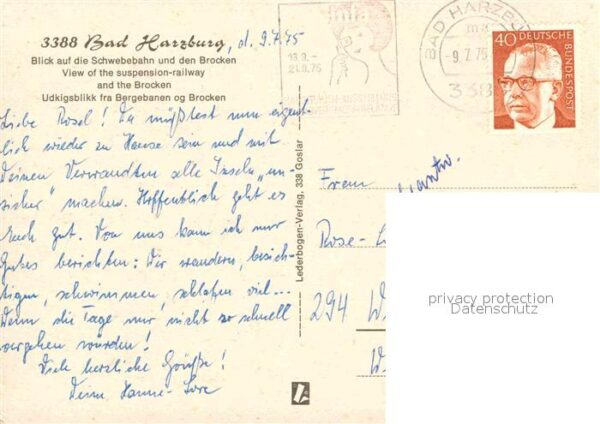 3388 Bad Harzburg, d. 9.7.75
Blick auf die Schwebebahn und den Brocken
View of the suspension-railway
and the Brocken
Udkigsblikk fra Bergebanen og Brocken
Liebe Rosel! Du müßtest nun eigent
lich wieder zu Hause sein und mit
Deinen Verwandten alle Inseln "un-
sicher" machen. Hoffentlich geht es
Euch gut. Von uns kann ich nur
Gutes berichten: Wir wandern, besich-
tigen, schwimmen, schlafen viel...
Wenn die Tage nur nicht so schnell
vergehen würden!
Viele herzliche Grüße!
Deine Hanne-Lore
Lederbogen-Verlag, 338 Goslar
BAD HARZBU
-9.7.75
338
40
DEUTSCHE
BUNDESPOST
Frau
Rose-L
294 W
W.
privacy protection
Datenschutz